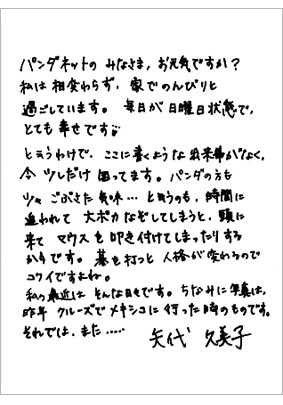 パンダネットの みなさま、お元気ですか？
私は 相変わらず、家でのんびりと
過ごしています。毎日が 日曜日状態で、
とても 幸せです
と云うわけで、ここに書くような 出来事がなく、
今 少しだけ 困ってます。パンダの方も
少々 ごぶさた 気味… と云うのも、時間に
追われて 大ポカなぞしてしまうと、頭に
来て マウスを 叩き付けてしまったりする
からです。碁を打つと 人格が変わるので
コワイですよね。
私の最近は そんな日々です。ちなみに写真は、
昨年 クルーズで メキシコに 行った時のものです。
それでは、また……
矢代 久美子